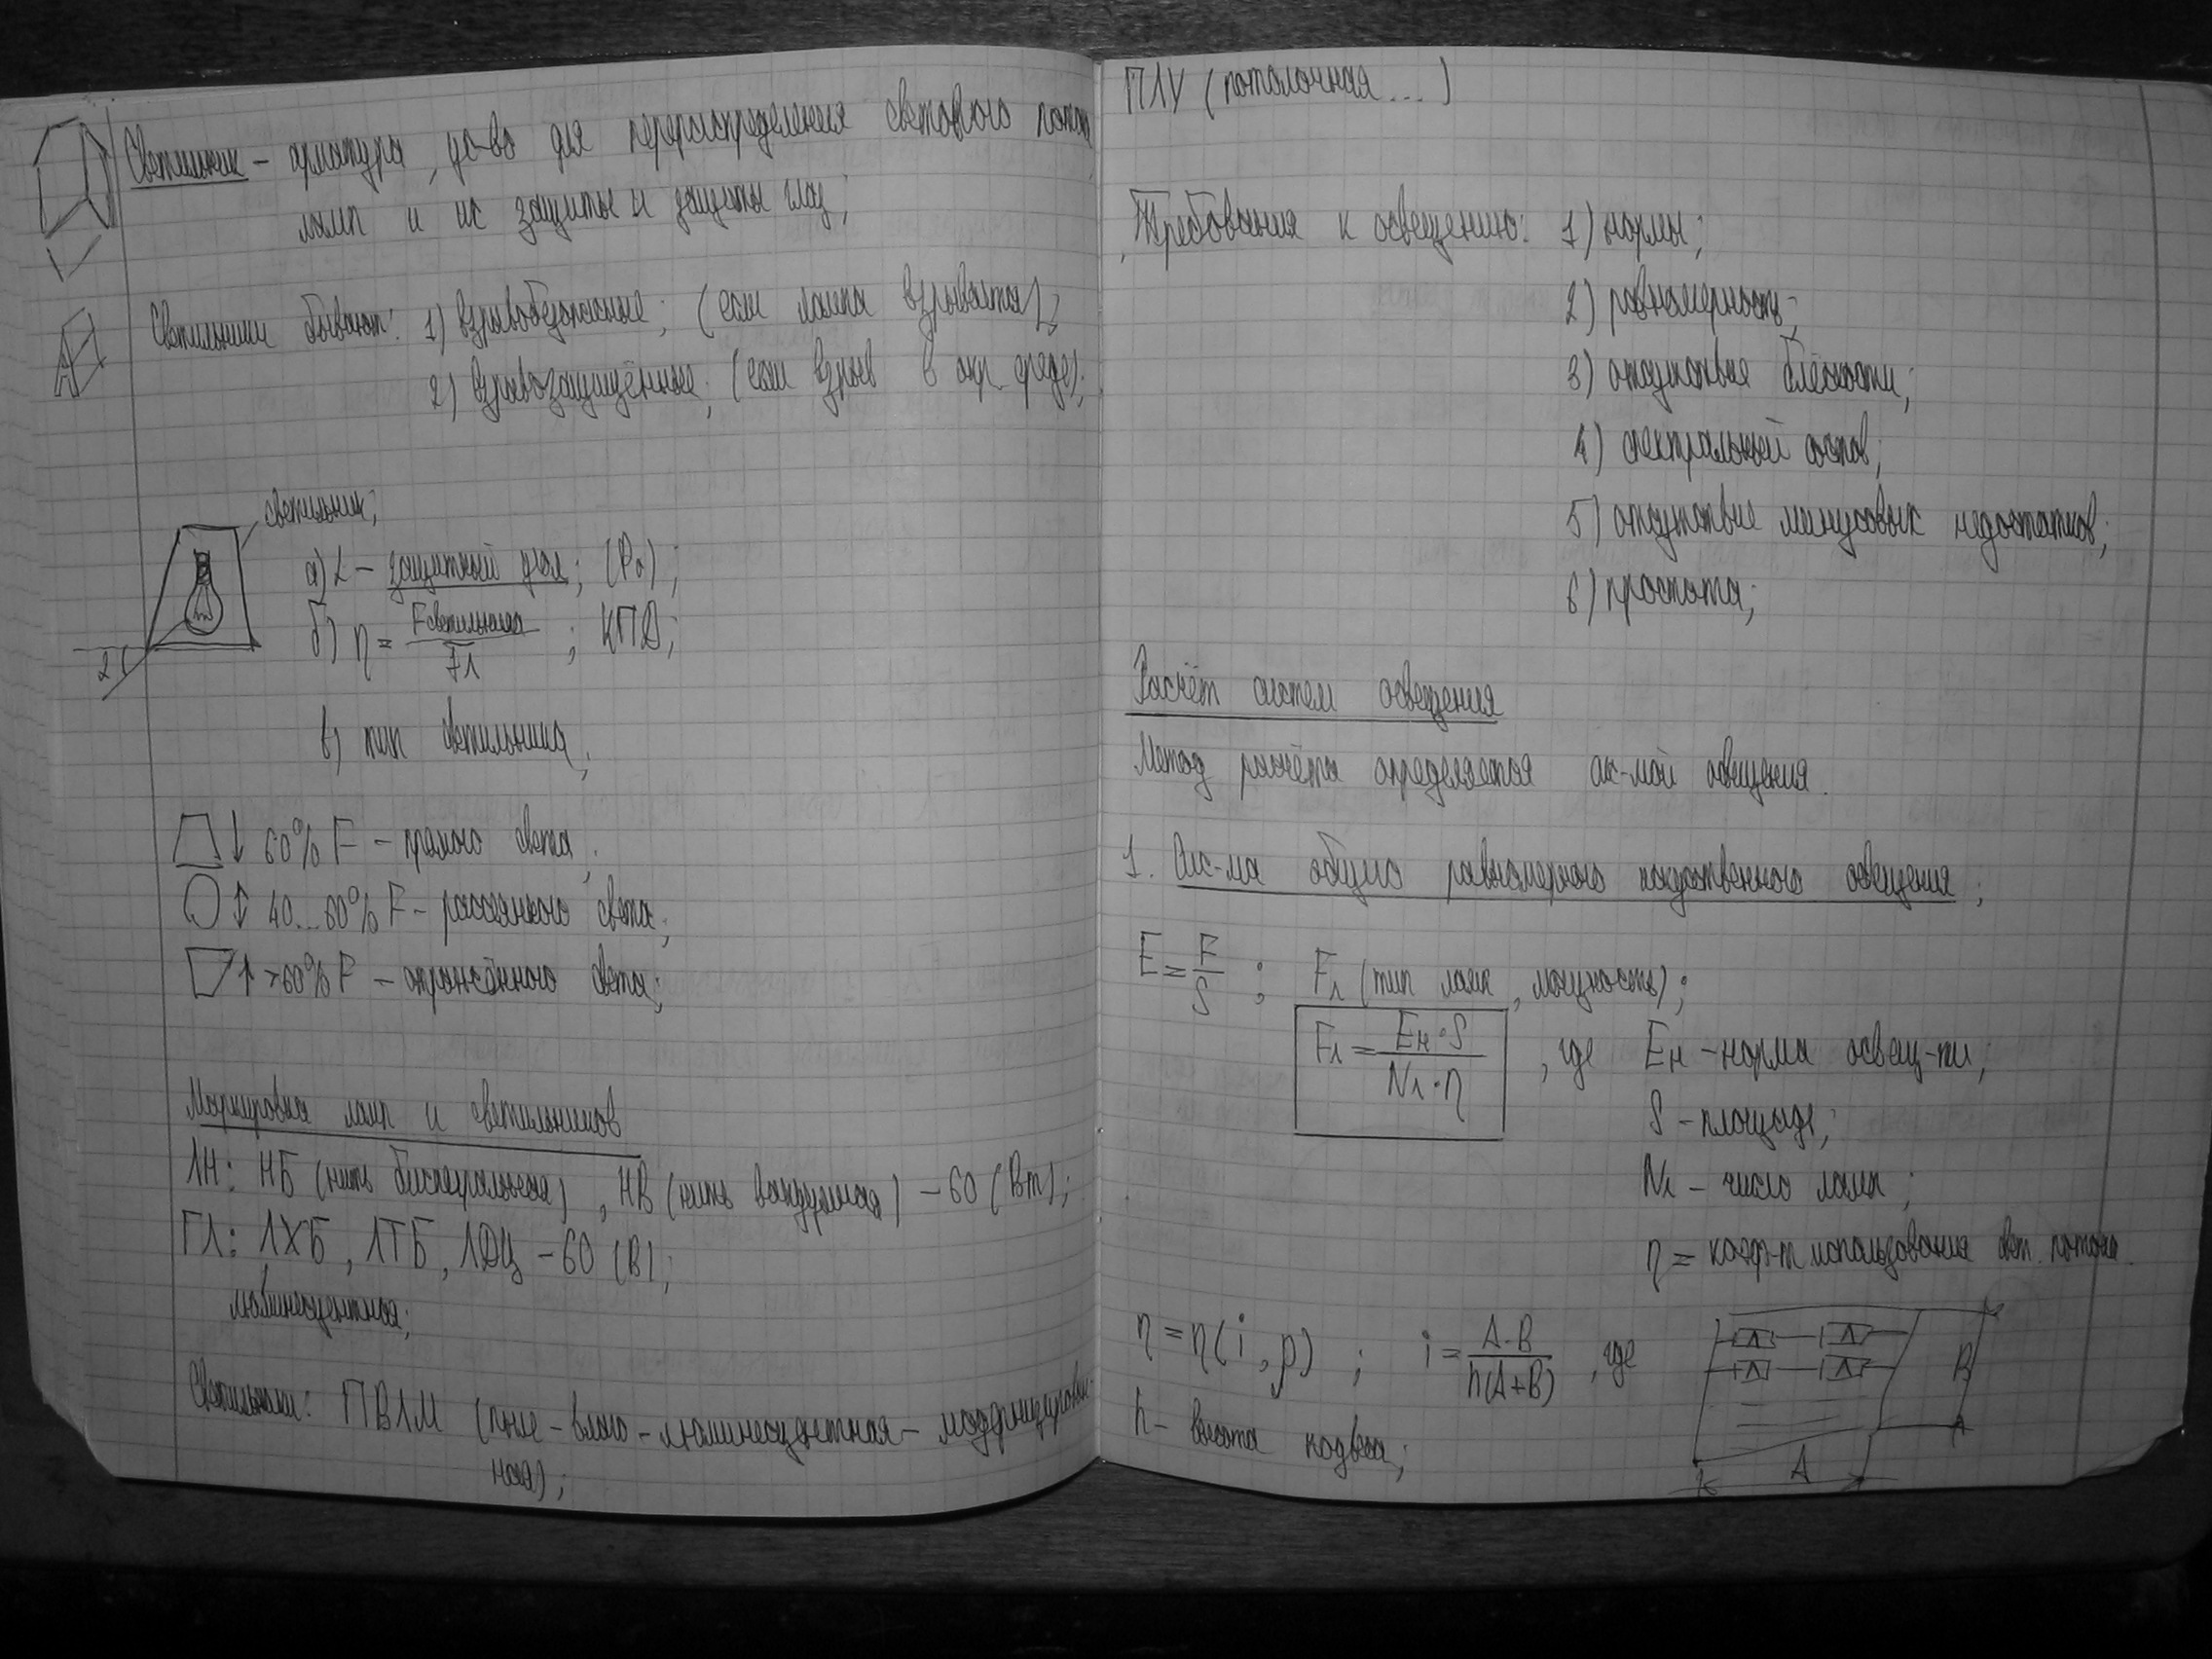 Светильник – арматура, ус-во для перераспределения светового потока
ламп и их защиты и защиты глаз;
Светильники бывают: 1) взрывобезопасные; (если лампа взрывается);
2) взрывозащищённые; (если взрыв в окр. среде);
светильник;
а) α – защитный угол;
б) η = Fсветильника / Fл ; КПД;
в) тип светильника;
α
↓ 60% F – прямого света;
↕ 40...60% F – рассеянного света;
↑ >60% F – отражённого света;
Маркировка ламп и светильников
ЛН: НБ (нить биспиральная), НВ (нить вакуумная) – 60 (Вт);
ГЛ: ЛХБ, ЛТБ, ЛДЦ – 60 (В);
люминесцентная;
Светильники: ПВЛМ (пыле – влаго – люминесцентная – модернизирован-
ная);
ПЛУ (потолочная...)
Требования к освещению: 1) нормы;
2) равномерность;
3) отсутствие блёскости;
4) спектральный состав;
5) отсутствие минусовых недостатков;
6) простота;
Расчёт систем освещения
Метод расчёта определяется сис-мой освещения.
1. Сис-ма общего равномерного искусственного освещения;
E = F / S ; Fл (тип ламп, мощность);
Fл = Eн · S / Nл · η , где Eн – норма освещ-ти;
S – площадь;
Nл – число ламп;
η = коэф-т использования свет. потока.
η = η(i, ρ) ; i = A·B / h(A+B) , где
h – высота подвеса;
Л Л
Л Л
B
A
A